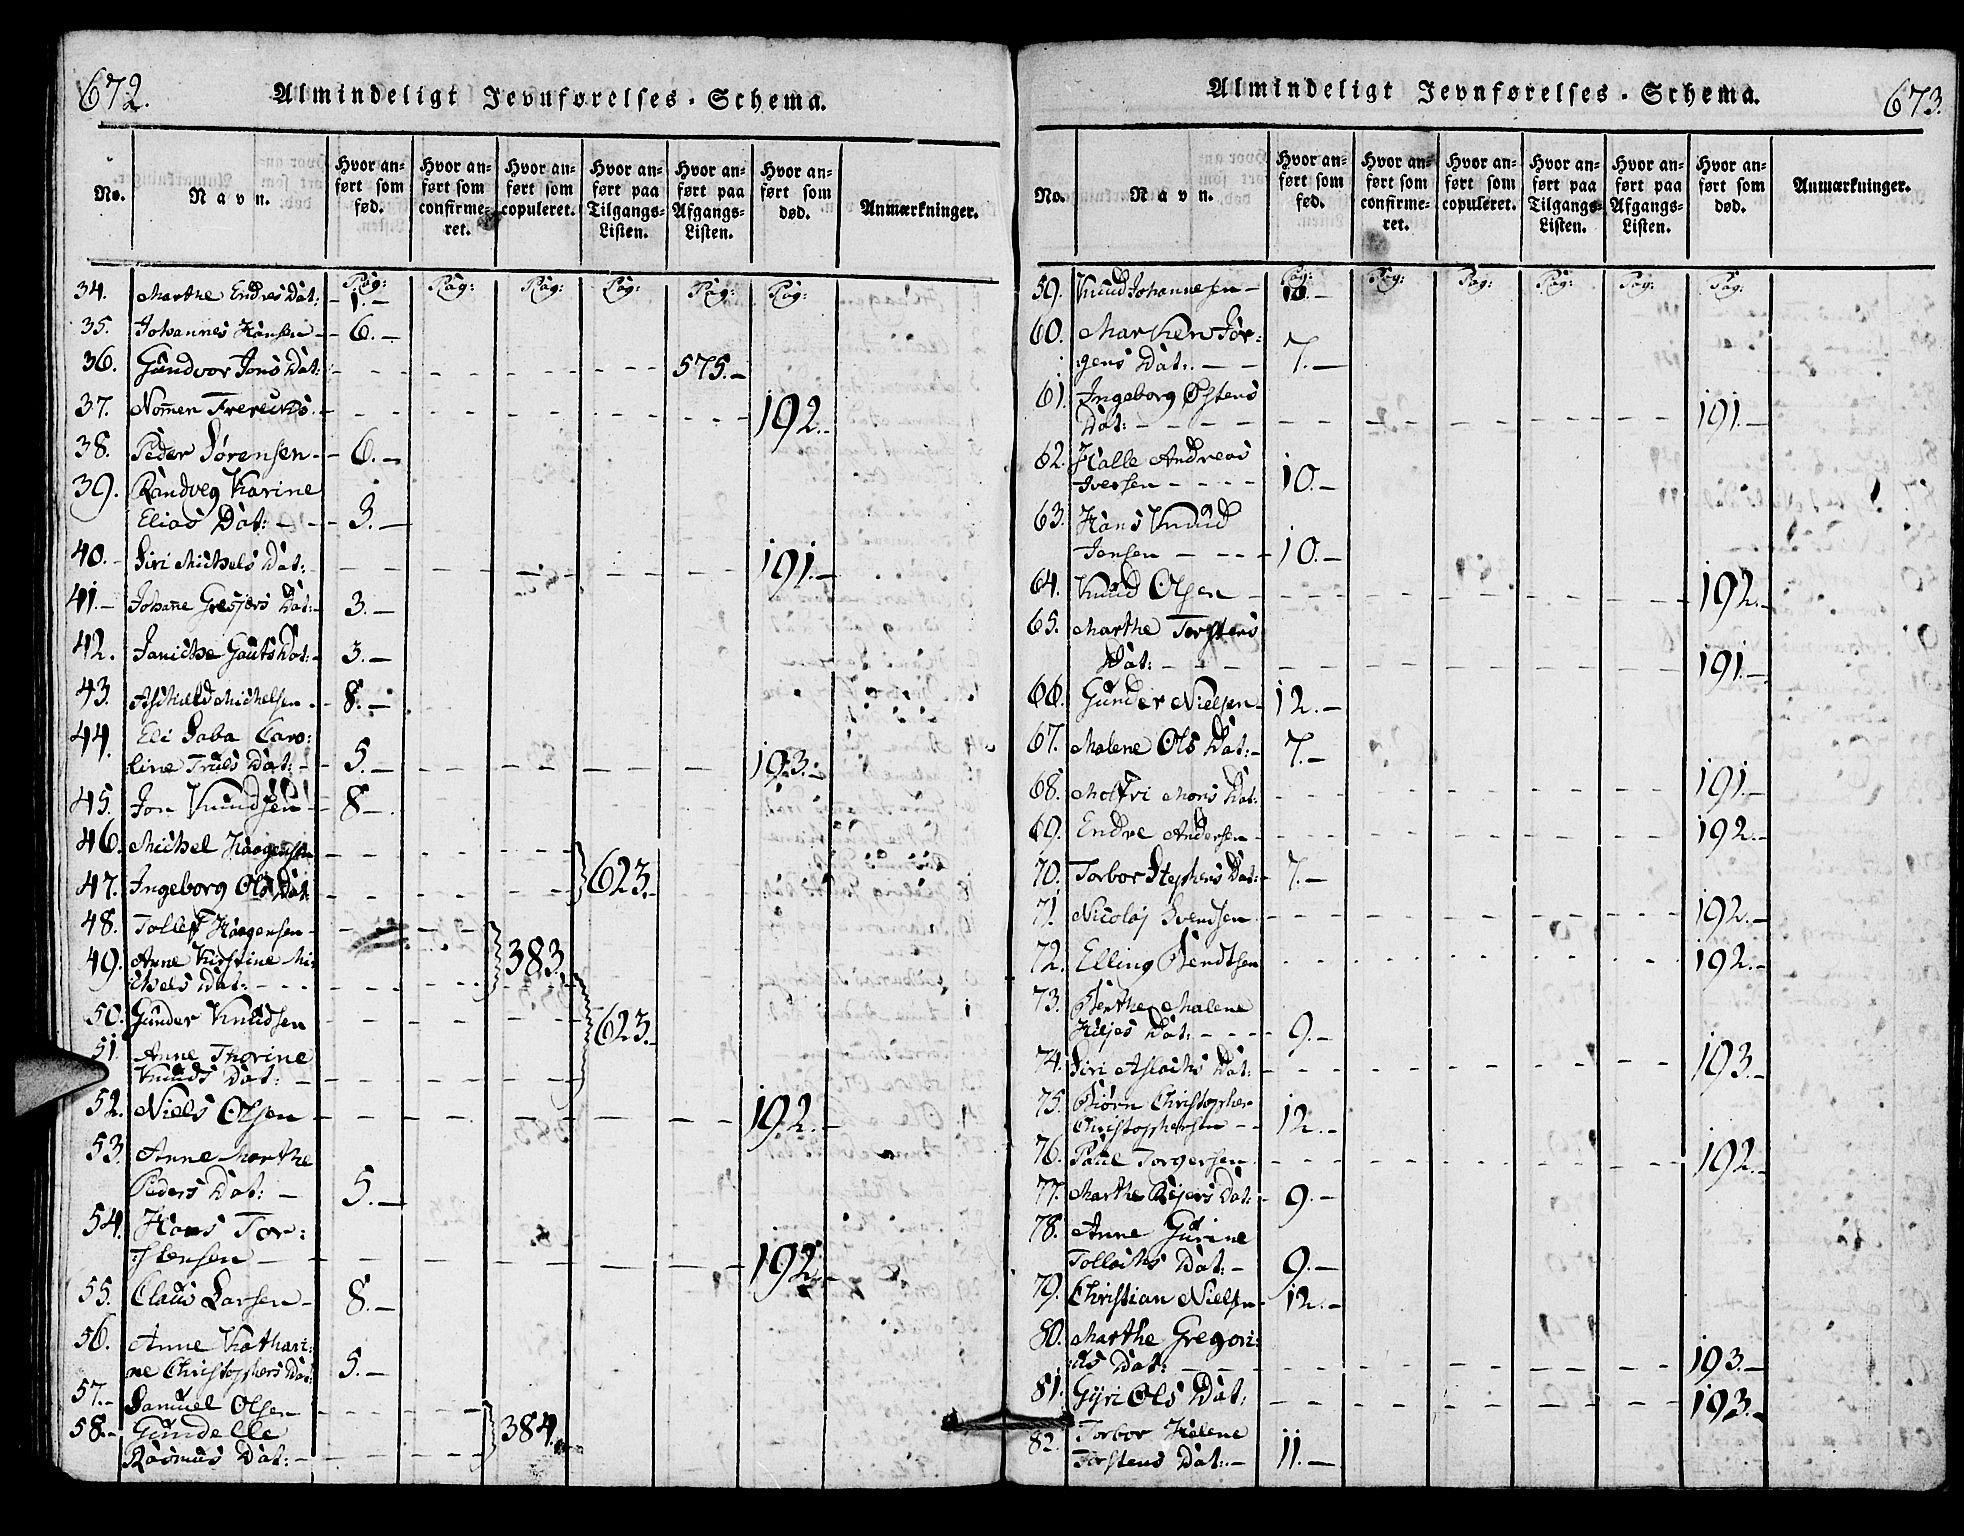 672.
Almindeligt Jevnførelses-Schema.
No.
Navn.
Hvor an-
ført som
fød.
Hvor an-
ført som
confirme-
ret.
Hvor an-
ført som
copuleret.
Hvor an-
ført paa
Tilgangs-
Listen.
Hvor an-
ført paa
Afgangs-
Listen.
Hvor an-
ført som
død.
Anmærkninger.
Pag: Pag: Pag: Pag: Pag: Pag:
34. Marthe Endres Dat: 1.
35. Johannes Hansen 6.
36. Gundvor Jons Dat: 575.
37. 192.
38. Peder Sørensen 6.
39. Randveg Karine
Elias Dat: 3.
40. Siri Michels Dat: 191.
41. Johanne Dat: 3.
42. Janicke Gauts Dat: 3.
43. Michelsen 8.
44. Eli Saba Caro:
line Truls Dat: 5. 193.
45. Jon Knudsen 8.
46. Michel Haagensen
47. Ingeborg Ols Dat: 623.
48. Tollef Haagensen
49. Anne Kirstine Mi:
chels Dat: 383.
50. Gunder Knudsen
623.
51. Anne Thorine
Knuds Dat:
52. Niels Olsen 192.
53. Anne Marthe
Peders Dat: 5.
54. Hans Tor:
stensen 192.
55. Claus Larsen 8.
56. Anne Kathari:
ne Christophers Dat: 5.
57. Samuel Olsen
58. Gundelle 384.
Rasmus Dat:
673.
Almindeligt Jevnførelses-Schema.
No.
Navn.
Hvor an-
ført som
fød.
Hvor an-
ført som
confirme-
ret.
Hvor an-
ført som
copuleret.
Hvor an-
ført paa
Tilgangs-
Listen.
Hvor an-
ført paa
Afgangs-
Listen.
Hvor an-
ført som
død.
Anmærkninger.
Pag: Pag: Pag: Pag: Pag: Pag:
59. Knud Johannesen 10.
60. Marken Jør:
gens Dat: 7.
61. Ingeborg Østens
Dat: 191.
62. Halle Andreas
Iversen 10.
63. Hans Knud
Jansen 10.
64. Knud Olsen 192.
65. Marthe Torstens
Dat: 191.
66. Gunder Nielsen 12.
67. Malene Ols Dat: 7.
68. Molfri Mons Dat: 191.
69. Endre Andersen 192.
70. Torbor Stephens Dat: 7.
71. Nicolaj Svendsen 192.
72. Elling Bendtsen 192.
73. Berthe Malene
Kiljes Dat: 9.
74. Siri Aslachs Dat: 193.
75. Biørn Christopher
Christophersen 12.
76. Paul Torgersen 192.
77. Marthe Reiers Dat: 9.
78. Anne Gurine
Tollachs Dat: 9.
79. Christian Nielsen 12.
80. Marthe Gregori:
us Dat: 193.
81. Gyri Ols Dat: 193.
82. Torbor Helene
Torstens Dat: 11.